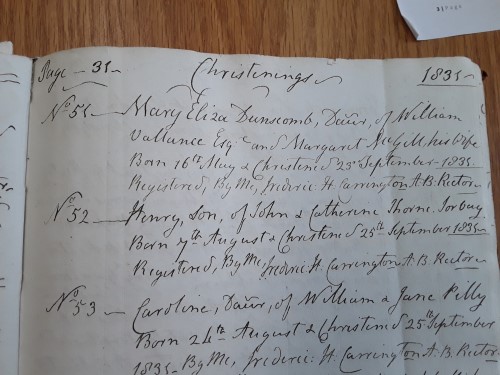 Page - 35 Christenings 1835
No 51 Mary Eliza Dunscomb, Daur, of William
Vallance Esqr and Margaret McGill, his Wife
Born 16th May & Christened 23d September - 1835
Registered, By Me, Frederic H. Carrington A.B. Rector
No 52 Henry, Son, of John & Catherine Thorne. Torbay
Born 7th August & Christened 25th September 1835
Registered, By Me, Frederic H. Carrington A.B. Rector
No 53 Caroline, Daur, of William & Jane Pilly
Born 24th August & Christened 25th September
1835 - By Me, Frederic: H. Carrington A.B. Rector